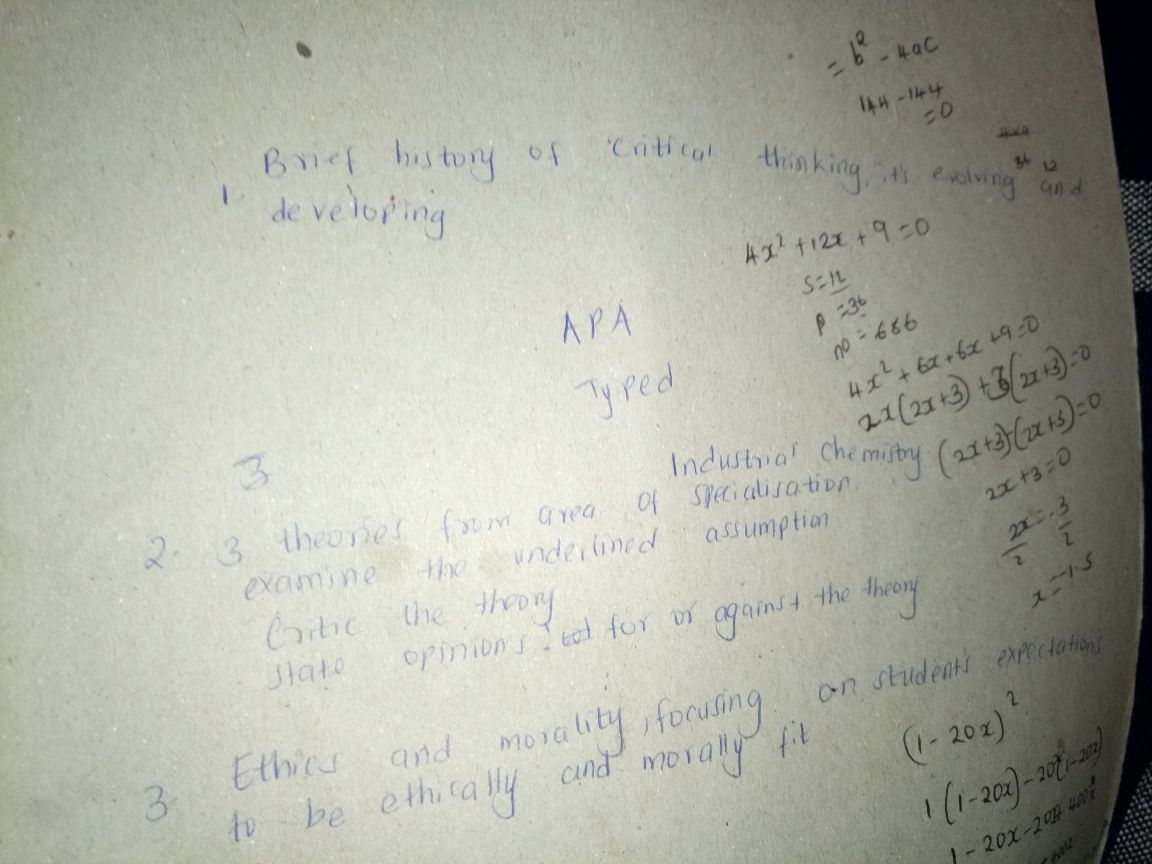 = b² - 4ac
144 - 144
= 0
Brief history of critical thinking, it's evolving and
1. developing
36 12
4x² + 12x + 9 = 0
S = 12
P = 36
no = 6&6
APA
Typed
4x² + 6x + 6x + 9 = 0
2x(2x+3) + 3(2x+3) = 0
(2x+3)(2x+3) = 0
2x + 3 = 0
2x = -3
2 2
x = -1.5
3
Industrial Chemistry
2. 3 theories from area of specialisation.
examine the underlined assumption
Critic the theory
state opinions for or against the theory
3. Ethics and morality, focusing on student's expectations
to be ethically and morally fit
(1 - 20x)²
1(1-20x) - 20x(1-20x)
1 - 20x - 20x + 400x²